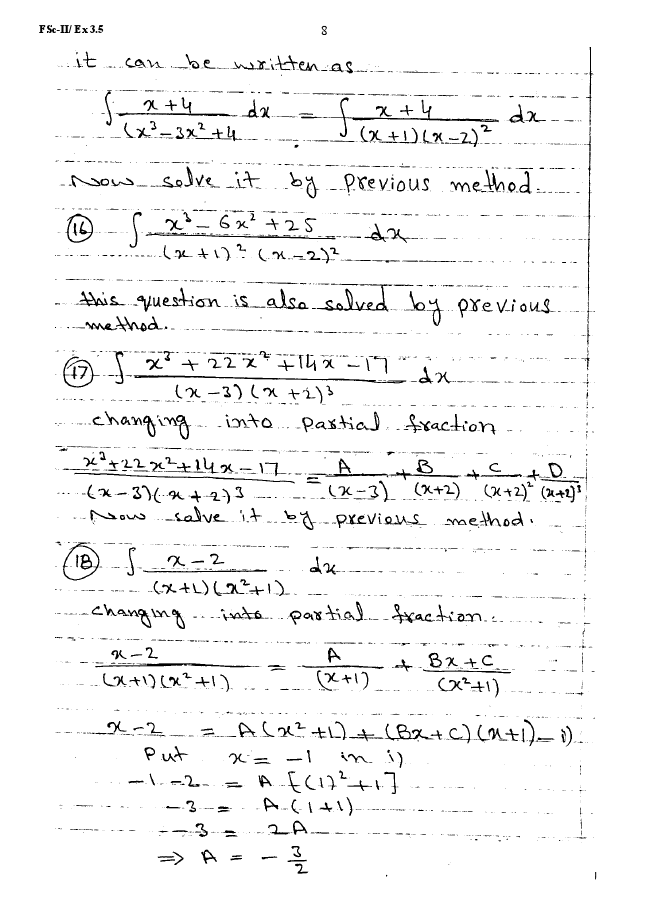 FSc-II/ Ex 3.5
8
it can be written as
∫ x+4/(x³-3x²+4 dx = ∫ x+4/(x+1)(x-2)² dx
Now solve it by previous method.
(16) ∫ x³-6x²+25/(x+1)²(x-2)² dx
this question is also solved by previous
method.
(17) ∫ x³+22x²+14x-17/(x-3)(x+2)³ dx
changing into partial fraction
x³+22x²+14x-17/(x-3)(x+2)³ = A/(x-3) + B/(x+2) + C/(x+2)² + D/(x+2)³
Now solve it by previous method.
(18) ∫ x-2/(x+1)(x²+1) dx
changing into partial fraction.
x-2/(x+1)(x²+1) = A/(x+1) + Bx+C/(x²+1)
x-2 = A(x²+1)+(Bx+C)(x+1)-i)
Put x = -1 in i)
-1-2 = A[(1)²+1]
-3 = A(1+1)
-3 = 2A
⇒ A = -3/2